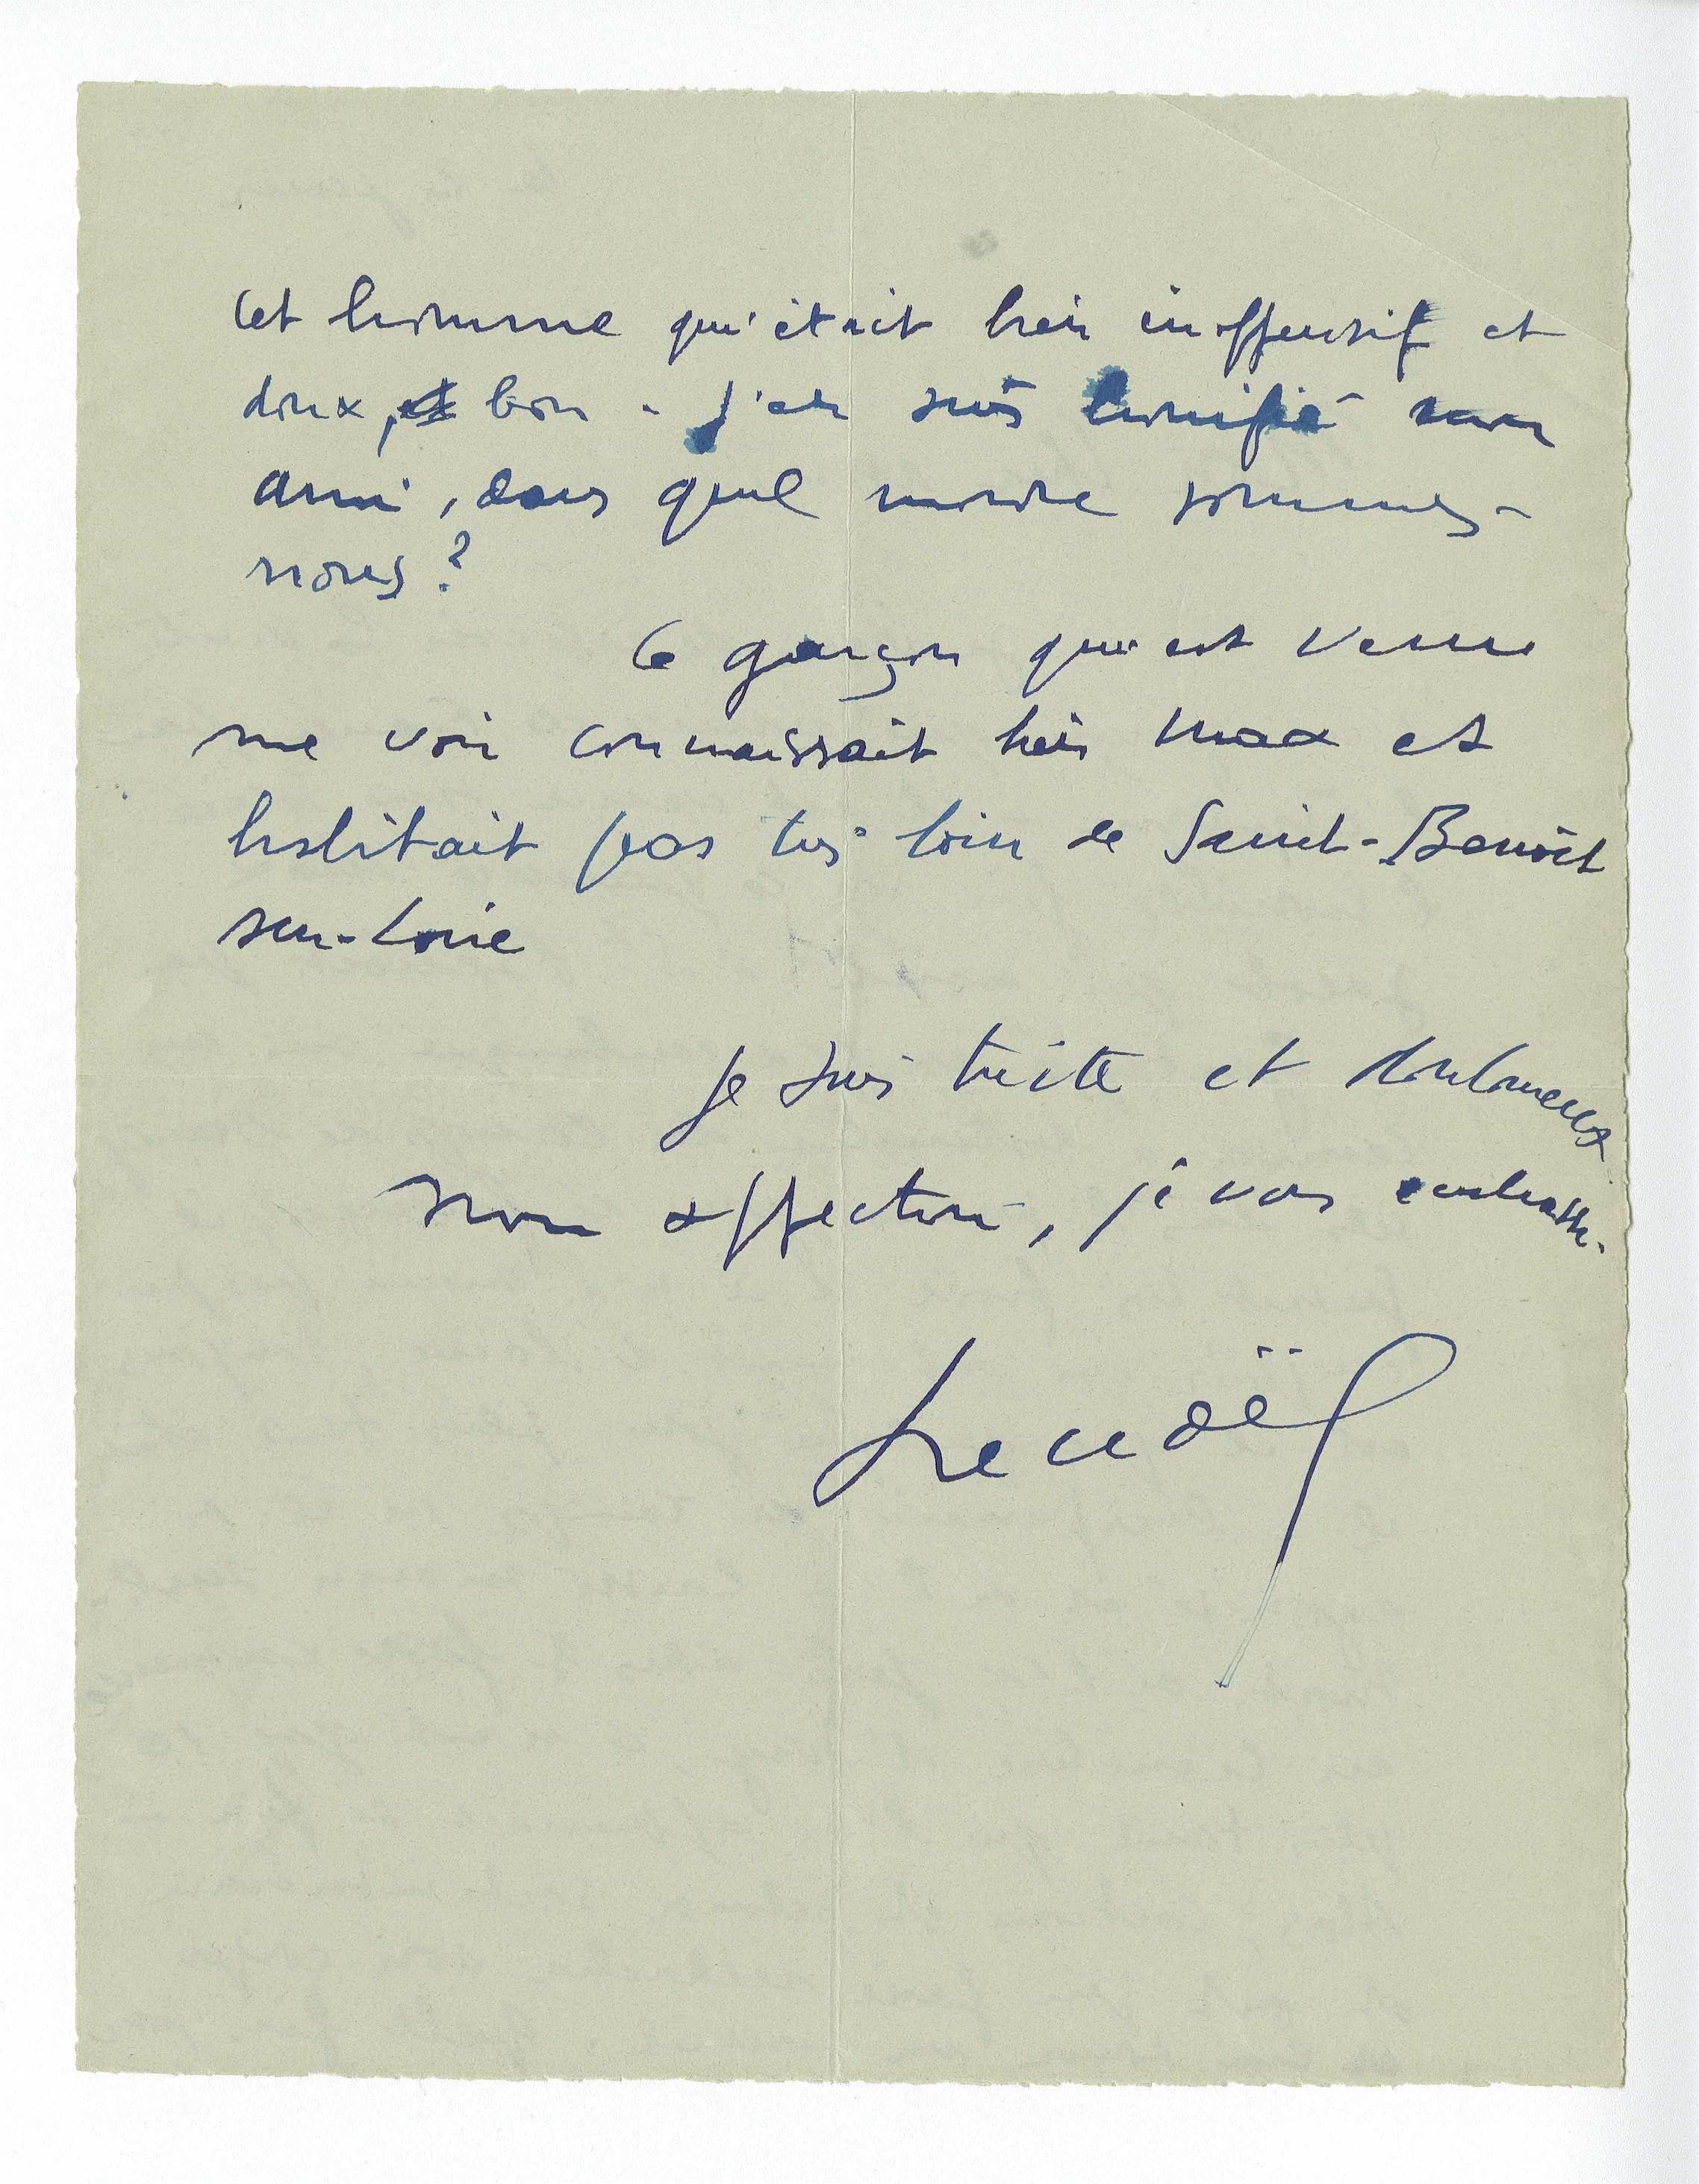 Cet homme qui était bien inoffensif et
doux, et bon. j'en suis terrifié mon
ami, dans quel monde sommes-
nous ?
Ce garçon qui est venu
me voir connaissait bien Max et
habitait pas très loin de Saint-Benoît
sur-Loire
Je suis triste et douloureux
mon affection, je vous embrasse.